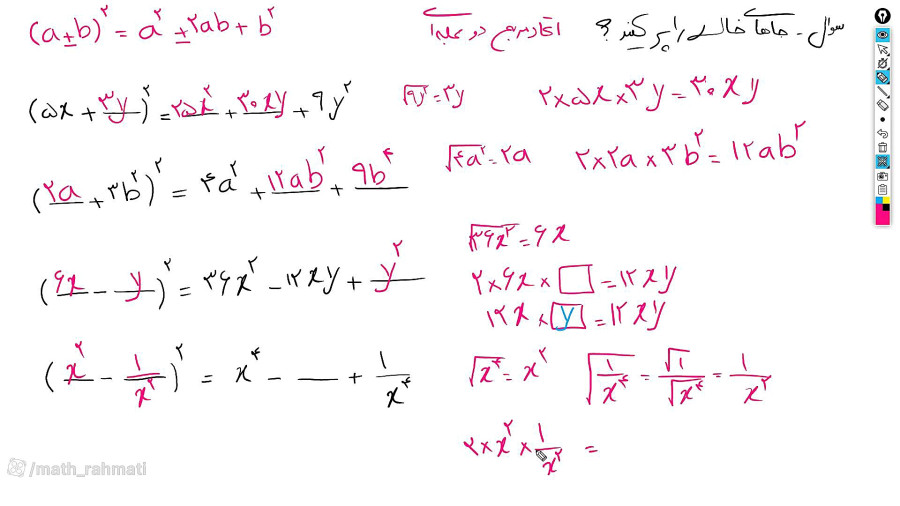 سوال - جاهای خالی را پر کنید ؟ اتحاد مربع دو جمله ای
(a±b)^۲ = a^۲ ± ۲ab + b^۲
(۵x + ۳y)^۲ = ۲۵x^۲ + ۳۰xy + ۹y^۲
√۹y^۲ = ۳y
۲×۵x×۳y = ۳۰xy
(۲a + ۳b^۲)^۲ = ۴a^۲ + ۱۲ab^۲ + ۹b^۴
√۴a^۲ = ۲a
۲×۲a×۳b^۲ = ۱۲ab^۲
(۶x - y)^۲ = ۳۶x^۲ - ۱۲xy + y^۲
√۳۶x^۲ = ۶x
۲×۶x×□ = ۱۲xy
۱۲x × y = ۱۲xy
(x^۲ - ۱/x^۲)^۲ = x^۴ - __ + ۱/x^۴
√x^۴ = x^۲
√(۱/x^۴) = √۱/√x^۴ = ۱/x^۲
۲×x^۲×۱/x^۲ =
/math_rahmati